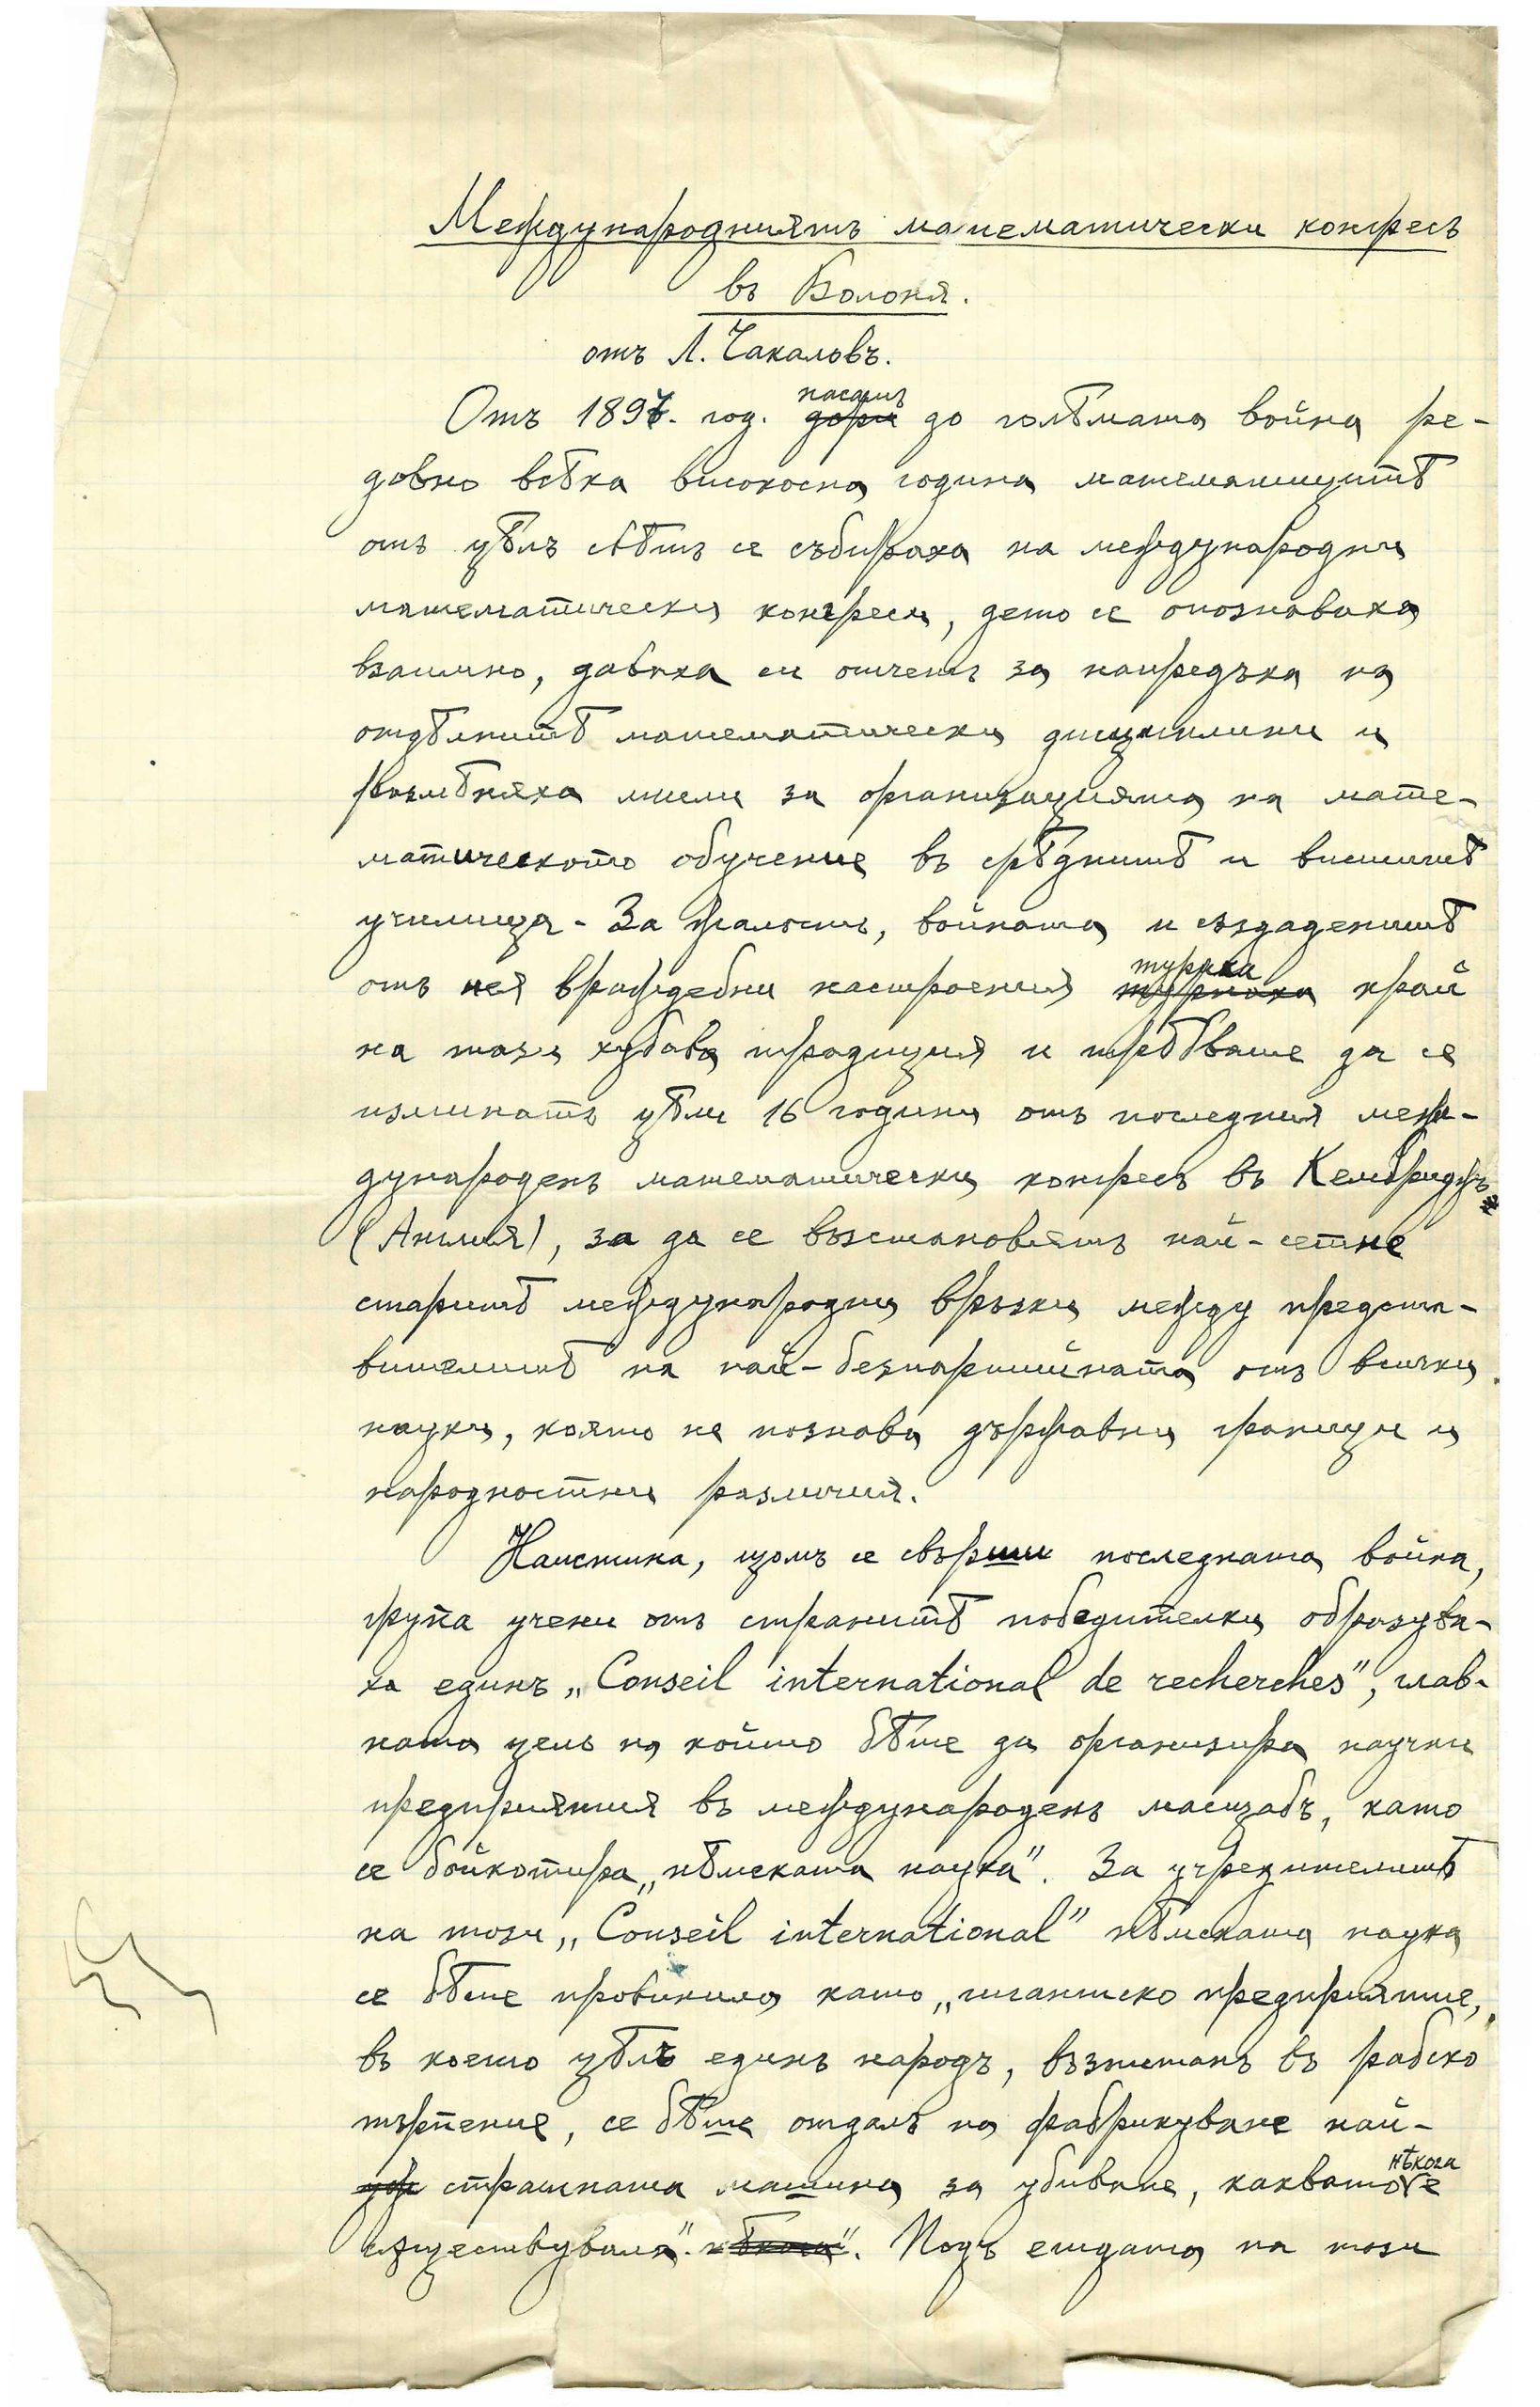 Международниятъ математически конгресъ
въ Болоня.
отъ Л. Чакаловъ.
насамъ
Отъ 1897. год. дори до голѣмата война ре-
довно всѣка високосна година математицитѣ
отъ цѣлъ свѣтъ се събираха на международни
математически конгреси, дето се опознаваха
взаимно, даваха си отчетъ за напредъка на
отдѣлнитѣ математически дисциплини и
размѣняха мисли за организацията на мате-
матическото обучение въ срѣднитѣ и висшитѣ
училища. За жалость, войната и създаденитѣ
туриха
отъ нея враждебни настроения туриха край
на тази хубава традиция и трѣбваше да се
изминатъ цѣли 16 години отъ последния меж-
дународенъ математически конгресъ въ Кембриджъ
(Англия), за да се възстановятъ най-сетне
старитѣ международни връзки между предста-
вителитѣ на най-безпартийната отъ всички
науки, която не познава държавни граници и
народностни различия.
Наистина, щомъ се свърши последната война,
група учени отъ странитѣ победителки образува-
ха единъ „Conseil international de recherches”, глав-
ната цель на който бѣше да организира научни
предприятия въ международенъ масщабъ, като
се бойкотира „нѣмската наука”. За учредителитѣ
на този „Conseil international” нѣмската наука
се бѣше провинила като „гигантско предприятие,
въ което цѣлъ единъ народъ, възпитанъ въ рабско
търпение, се бѣше отдалъ на фабрикуване най-
нѣкога
страшната машина за убиване, каквато е
съществувала”. нѣкога”. Подъ егидата на този